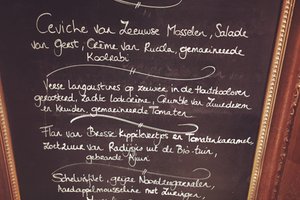 Ceviche van Zeeuwse Mosselen, Salade
van Geest, Crème van Rucola, gemarineerde
Koolrabi
Verse langoustines op zeewier in de Houtskooloven
gerookerd, Zachte lookcrème, Crumble van Zuurdesem
en Kruiden, gemarineerde Tomaten
Flan van Bresse Kippelevertjes en Tomatenkaramel,
Zoetzuur van Radijsjes uit de Bio-tuin,
gebrande Ajuin
Schelvisfilet, grijze Noordzeegarnalen,
Aardappelmousseline met